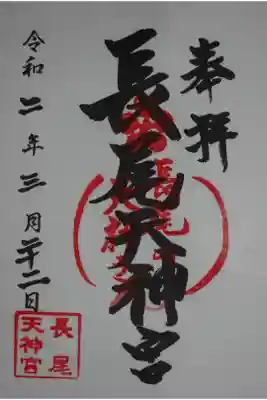 奉拝
長尾天神宮
令和二年三月二十二日
長尾
天神宮